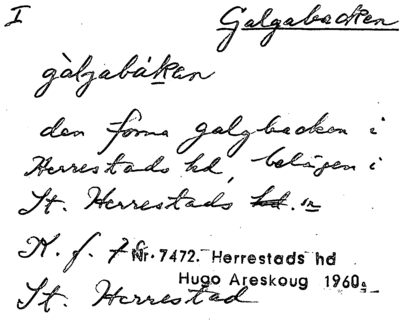 I Galgabacken
gàlgabákan
den forna galgbacken i
Herrestads hd, belägen i
St. Herrestads sn
K. f. Nr. 7472. Herrestads hd
Hugo Areskoug 1960.
St. Herrestad